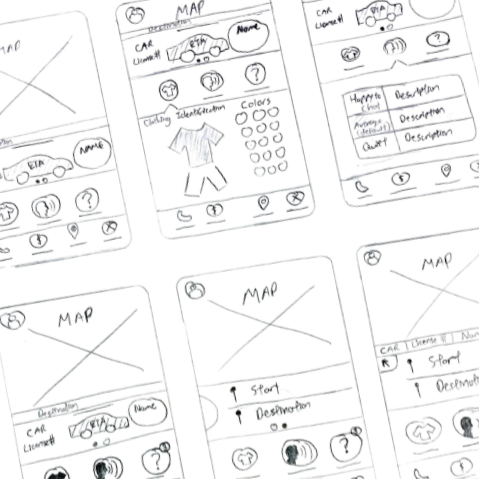 MAP
ETA
NAME
$
MAP
Destination
CAR
License#
ETA
Name
?
Clothing Identification
Colors
$
CAR
License#
ETA
?
Happy to chat
Description
Average (default)
Description
Quiet
Description
$
MAP
Destination
CAR
License#
ETA
Name
?
MAP
Start
Destination
?
MAP
CAR | License # | Nam
Start
Destinatio